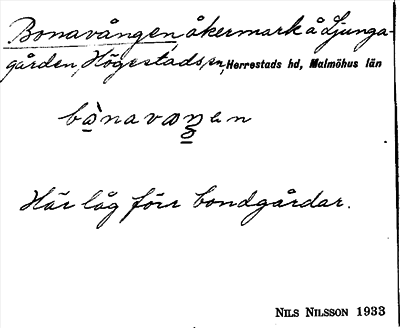 Bonavången, åkermark å Ljunga-
gården, Högestads, sn, Herrestads hd, Malmöhus län
Här låg förr bondgårdar.
NILS NILSSON 1933